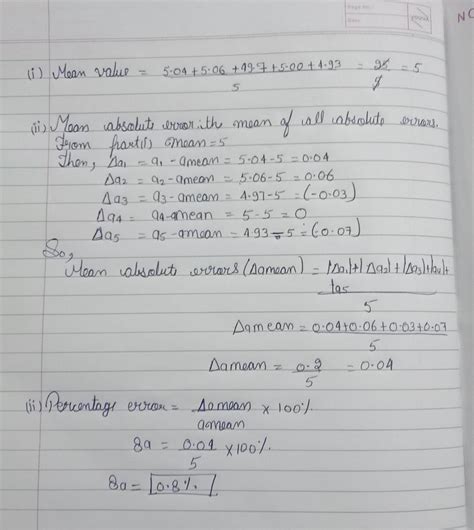 NO
(i) Mean value = 5.04+5.06+4.97+5.00+4.93 / 5 = 25/5 = 5
(ii) Mean absolute error: ith mean of all absolute errors.
From part(i) amean = 5
Then, Δa1 = a1 - amean = 5.04-5 = 0.04
Δa2 = a2 - amean = 5.06-5 = 0.06
Δa3 = a3 - amean = 4.97-5 = (-0.03)
Δa4 = a4 - amean = 5-5 = 0
Δa5 = a5 - amean = 4.93-5 = (-0.07)
So,
Mean absolute errors (Δamean) = |Δa1|+|Δa2|+|Δa3|+|a4|+
|a5 / 5
Δamean = 0.04+0.06+0.03+0.07 / 5
Δamean = 0.2 / 5 = 0.04
(ii) Percentage error = Δamean / amean × 100%
δa = 0.04 / 5 × 100%
δa = 0.8%